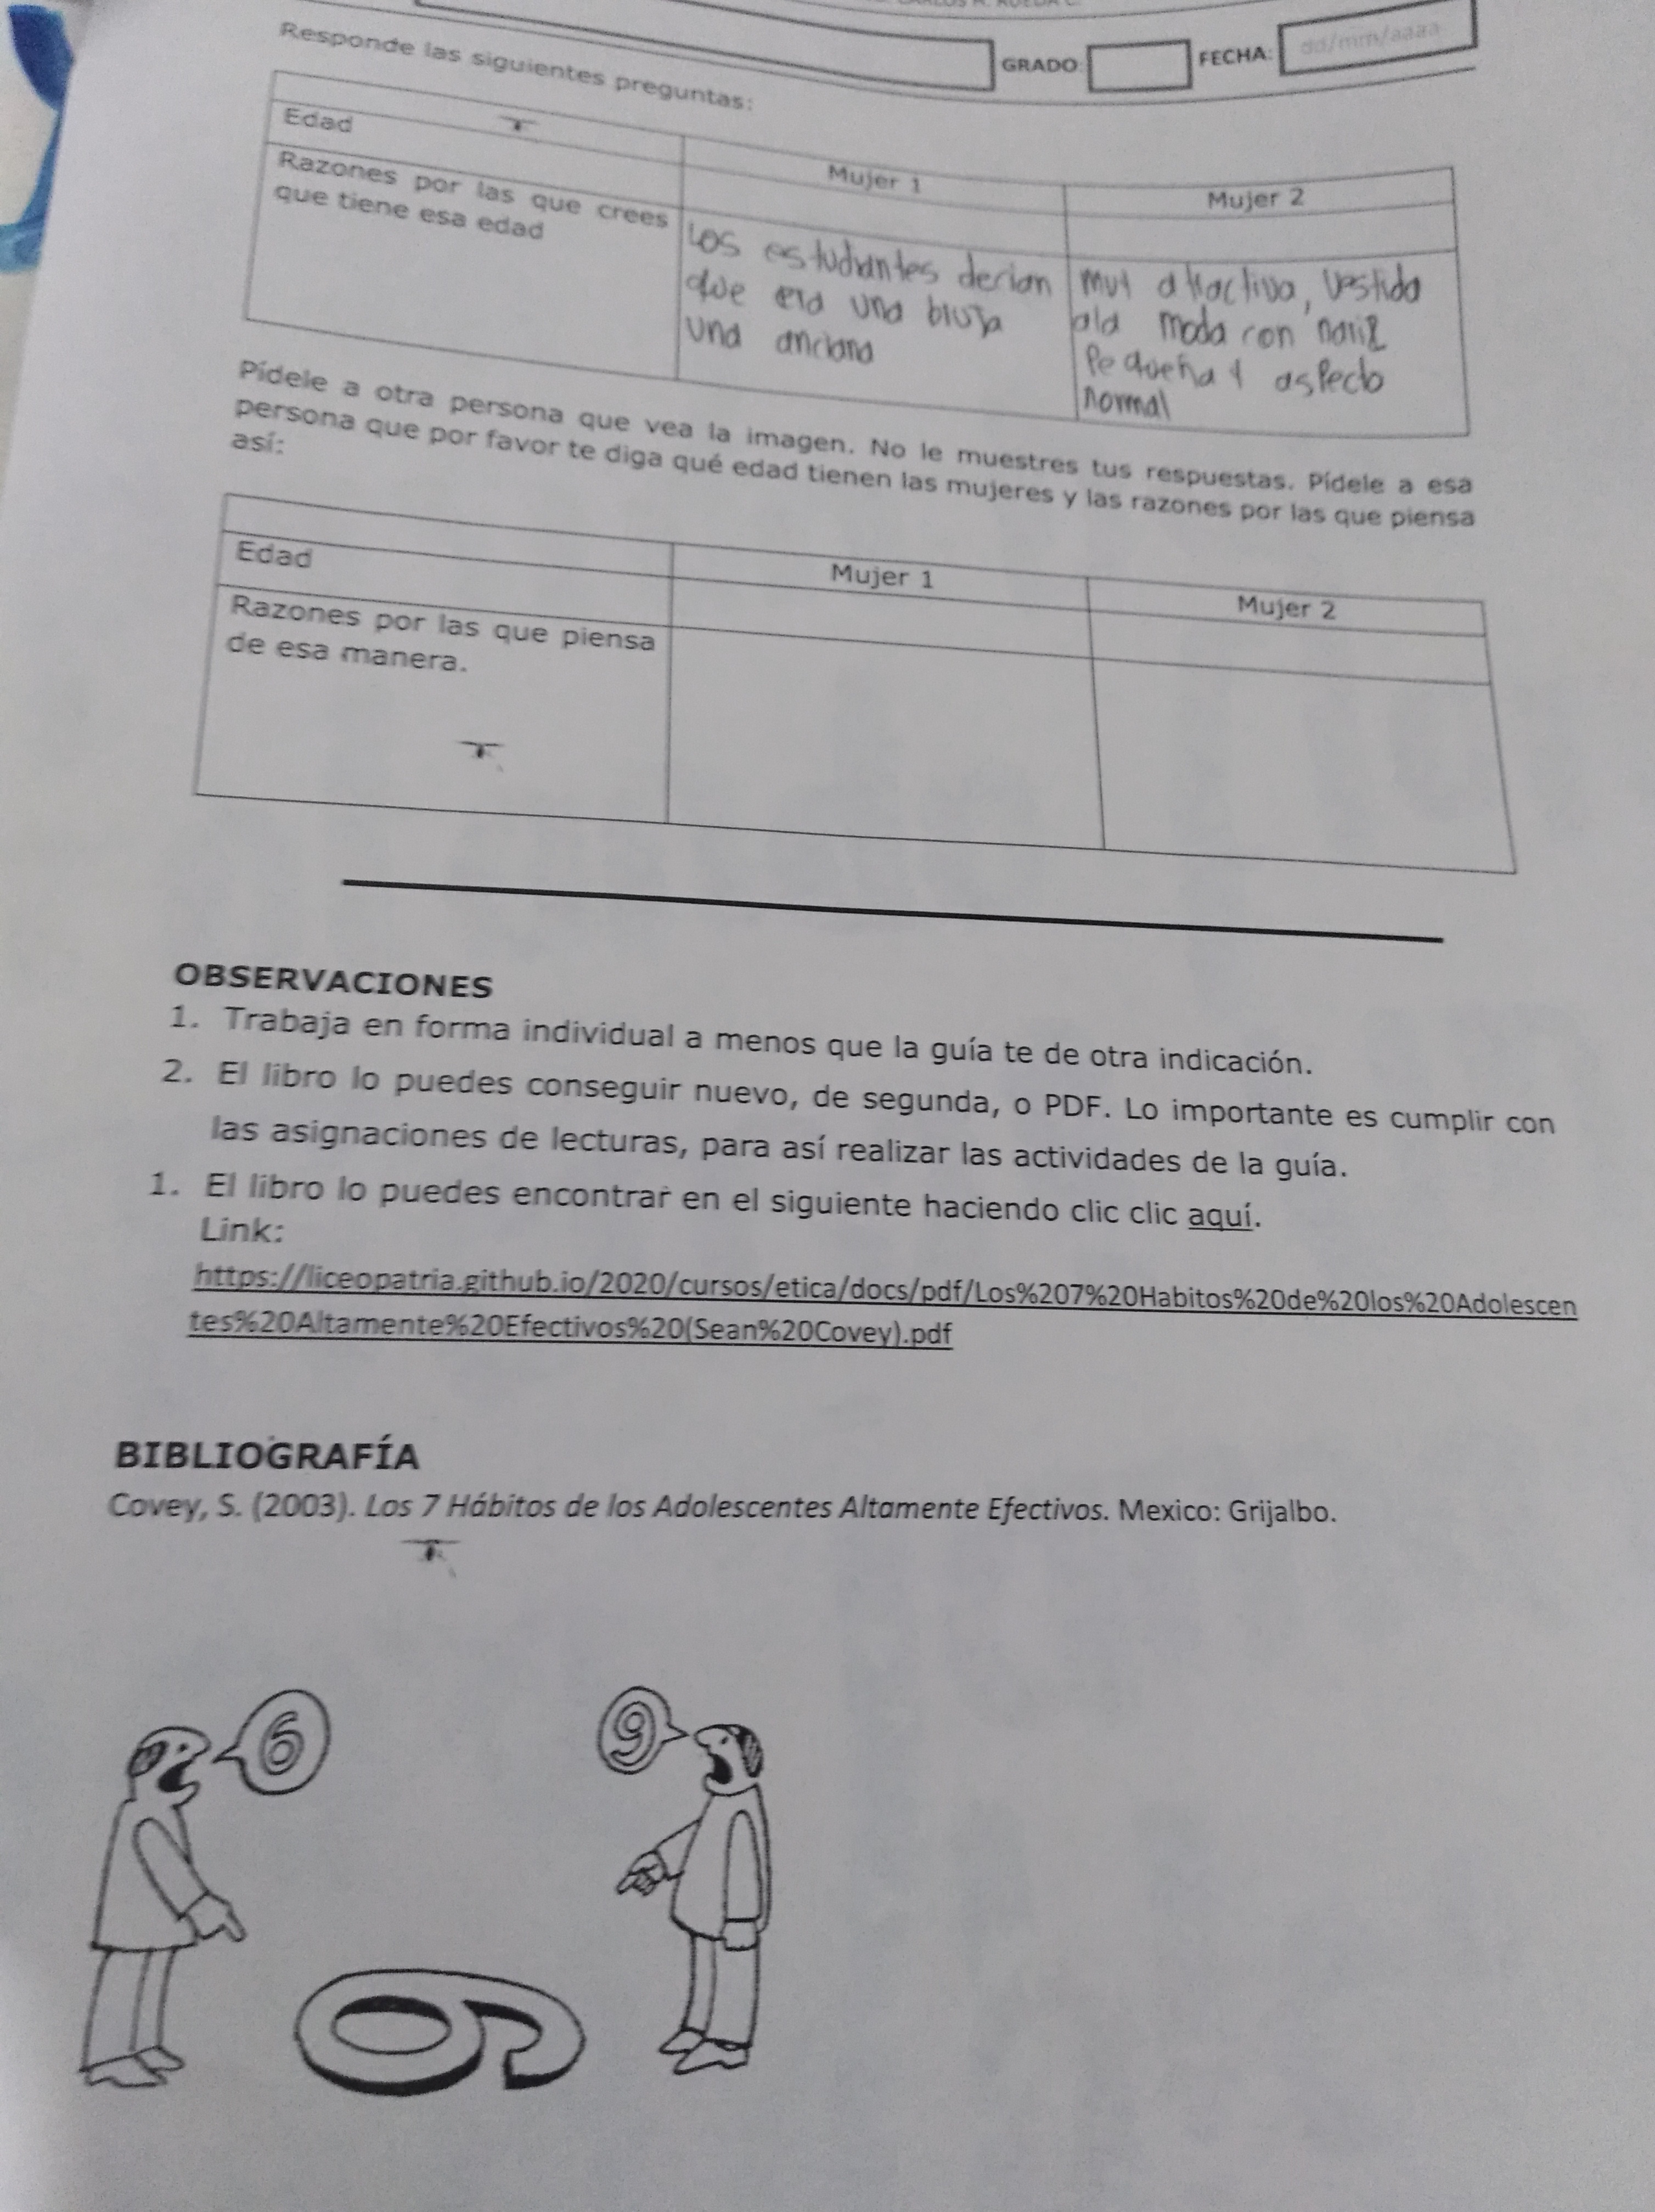 GRADO:
FECHA:
dd/mm/aaaa
Responde las siguientes preguntas:
Mujer 1
Mujer 2
Edad
Razones por las que crees
que tiene esa edad
Los estudiantes decian
que era una bruja
una anciana
muy atractiva, vestida
ala moda con nariz
Pequeña y aspecto
normal
Pídele a otra persona que vea la imagen. No le muestres tus respuestas. Pídele a esa
persona que por favor te diga qué edad tienen las mujeres y las razones por las que piensa
así:
Mujer 1
Mujer 2
Edad
Razones por las que piensa
de esa manera.
OBSERVACIONES
1. Trabaja en forma individual a menos que la guía te de otra indicación.
2. El libro lo puedes conseguir nuevo, de segunda, o PDF. Lo importante es cumplir con
las asignaciones de lecturas, para así realizar las actividades de la guía.
1. El libro lo puedes encontrar en el siguiente haciendo clic clic aquí.
Link:
https://liceopatria.github.io/2020/cursos/etica/docs/pdf/Los%207%20Habitos%20de%20los%20Adolescen
tes%20Altamente%20Efectivos%20(Sean%20Covey).pdf
BIBLIOGRAFÍA
Covey, S. (2003). Los 7 Hábitos de los Adolescentes Altamente Efectivos. Mexico: Grijalbo.
6
9